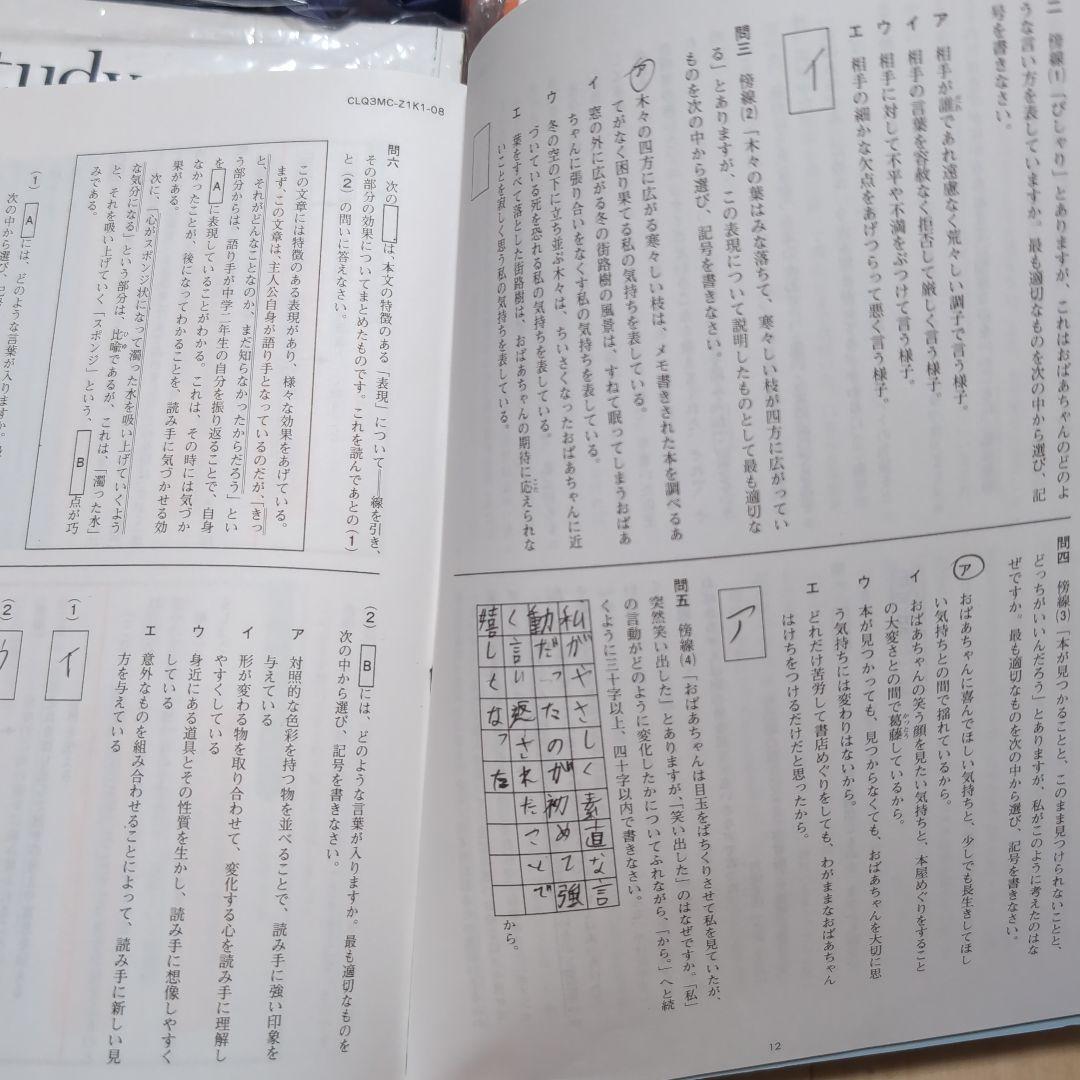 study
二 傍線(1)「ぴしゃり」とありますが、これはおばあちゃんのどのよ
うな言い方を表していますか。最も適切なものを次の中から選び、記
号を書きなさい。
ア 相手が誰であれ遠慮なく荒々しい調子で言う様子。
イ 相手の言葉を容赦なく拒否して厳しく言う様子。
ウ 相手に対して不平や不満をぶつけて言う様子。
エ 相手の細かな欠点をあげつらって悪く言う様子。
イ
問三 傍線(2)「木々の葉はみな落ちて、寒々しい枝が四方に広がってい
る」とありますが、この表現について説明したものとして最も適切な
ものを次の中から選び、記号を書きなさい。
ア 木々の四方に広がる寒々しい枝は、メモ書きされた本を調べるあ
てがなく困り果てる私の気持ちを表している。
イ 窓の外に広がる冬の街路樹の風景は、すねて眠ってしまうおばあ
ちゃんに張り合いをなくす私の気持ちを表している。
ウ 冬の空の下に立ち並ぶ木々は、ちいさくなったおばあちゃんに近
づいている死を恐れる私の気持ちを表している。
エ 葉をすべて落とした街路樹は、おばあちゃんの期待に応えられな
いことを寂しく思う私の気持ちを表している。
問四 傍線(3)「本が見つかることと、このまま見つけられないことと、
どっちがいいんだろう」とありますが、私がこのように考えたのはな
ぜですか。最も適切なものを次の中から選び、記号を書きなさい。
ア おばあちゃんに喜んでほしい気持ちと、少しでも長生きしてほし
い気持ちとの間で揺れているから。
イ おばあちゃんの笑う顔を見たい気持ちと、本屋めぐりをすること
の大変さとの間で葛藤しているから。
ウ 本が見つかっても、見つからなくても、おばあちゃんを大切に思
う気持ちには変わりはないから。
エ どれだけ苦労して書店めぐりをしても、わがままなおばあちゃん
はけちをつけるだけだと思ったから。
ア
問五 傍線(4)「おばあちゃんは目玉をぱちくりさせて私を見ていたが、
突然笑い出した」とありますが、「笑い出した」のはなぜですか。「私」
の言動がどのように変化したかについてふれながら、「から。」へと続
くように三十字以上、四十字以内で書きなさい。
私がやさしく素直な言
動だったのが初めて強
く言い返されたことで
嬉しくなった
から。
12
CLQ3MC-Z1K1-08
問六 次の は、本文の特徴のある「表現」について――線を引き、
その部分の効果についてまとめたものです。これを読んであとの(1)
と(2)の問いに答えなさい。
この文章には特徴のある表現があり、様々な効果をあげている。
まず、この文章は、主人公自身が語り手となっているのだが、「きっ
と、それがどんなことなのか、まだ知らなかったからだろう」とい
う部分からは、語り手が中学二年生の自分を振り返ることで、自身
を A に表現していることがわかる。これは、その時には気づか
なかったことが、後になってわかることを、読み手に気づかせる効
果がある。
次に、「心がスポンジ状になって濁った水を吸い上げていくよう
な気分になる」という部分は、比喩であるが、これは、「濁った水」
と、それを吸い上げていく「スポンジ」という、 B 点が巧
みである。
(1) A には、どのような言葉が入りますか。
(2) B には、どのような言葉が入りますか。最も適切なものを
次の中から選び、記号を書きなさい。
ア 対照的な色彩を持つ物を並べることで、読み手に強い印象を
与えている
イ 形が変わる物を取り合わせて、変化する心を読み手に理解し
やすくしている
ウ 身近にある道具とその性質を生かし、読み手に想像しやすく
している
エ 意外なものを組み合わせることによって、読み手に新しい見
方を与えている
(1)
イ
(2)
ウ